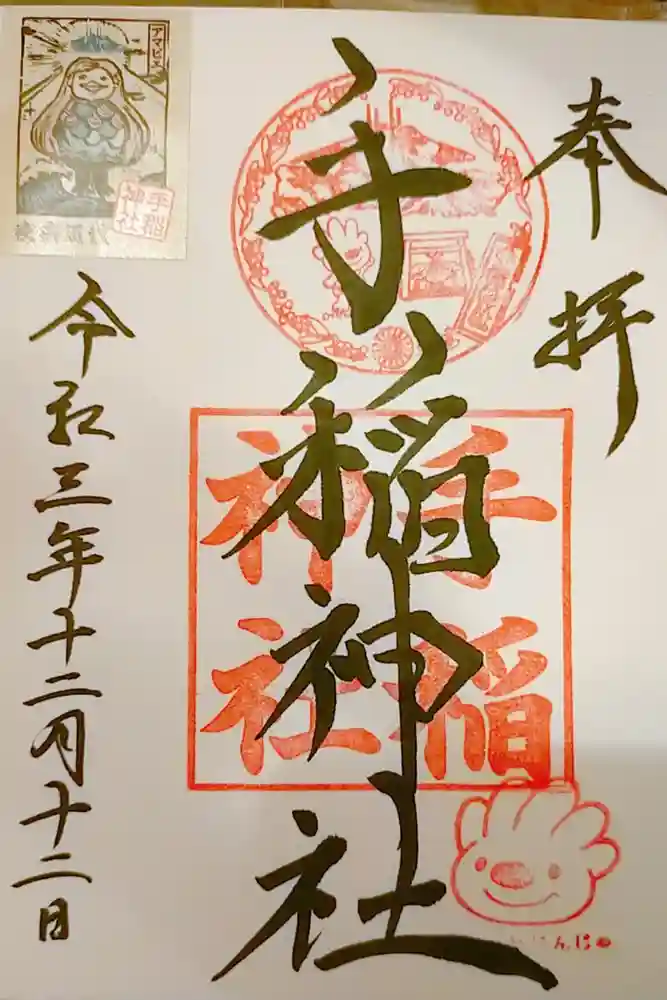 奉拝
手稲神社
手稲
神社
令和三年十二月十二日
アマビエ
手稲
神社